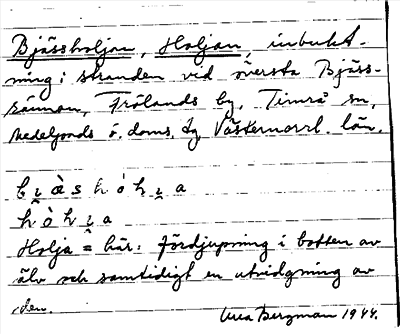 Bjässholjan, Holjan, inbukt-
ning i stranden vid översta Bjäss-
sännan, Frölands by, Timrå sn,
Medelpads ö. doms. tg Västernorrl. län.
h ò h
Holja = här: fördjupning i botten av
älv och samtidigt en utvidgning av
den.
Bergman 1944.